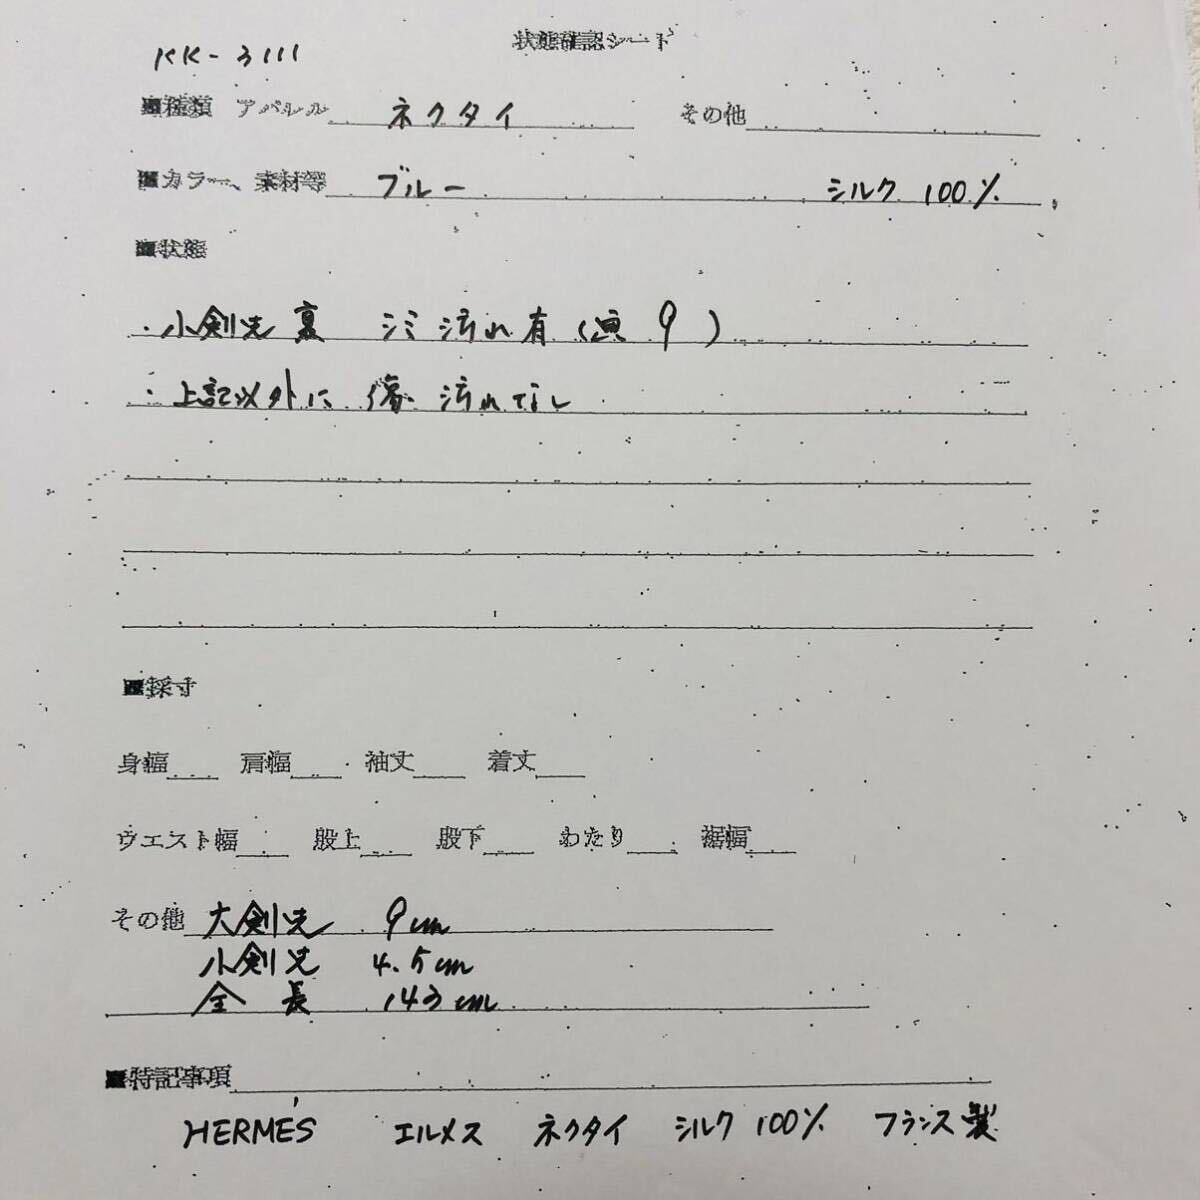 状態確認シート
KK-3111
■種類 アパレル ネクタイ その他
■カラー、素材等 ブルー シルク 100%
■状態
・小剣先 裏 シミ 汚れ 有 ( 9 )
・上記以外に 傷 汚れ なし
■採寸
身幅 肩幅 袖丈 着丈
ウエスト幅 股上 股下 わたり 裾幅
その他 大剣先 9cm
小剣先 4.5cm
全 長 143cm
■特記事項
HERMÉS エルメス ネクタイ シルク 100% フランス製